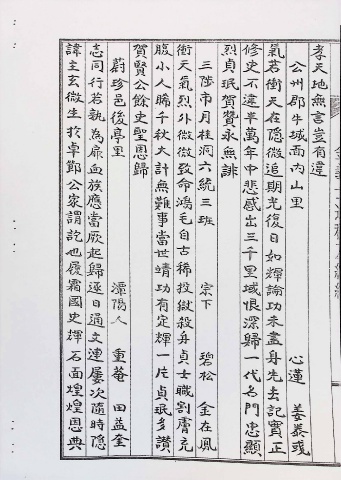 孝天地無言豈有違
公州郡牛城面內山里　心蓮　姜泰彧
氣若衝天在隱微追期光復日如輝論功未盡身先去記實正
修史不違半萬年中悲感出三千里域恨深歸一代名門忠顯
烈貞珉賀贊永無誹
三陟市月桂洞六統三班　宗下　碧松　金在鳳
衝天氣烈外微微致命鴻毛自古稀投獄殺身貞士職割膚充
腹小人腸千秋大計無難事當世靖功有定輝一片貞珉多讚
賀賢公餘史聖恩歸
蔚珍邑後亭里　潭陽人　重菴　田益奎
志同行若孰為扉血族應當厥起歸逐日通文連屢次隨時隱
諱主玄微生於卓節公家謂訖也履霜國史輝石面煌煌恩典